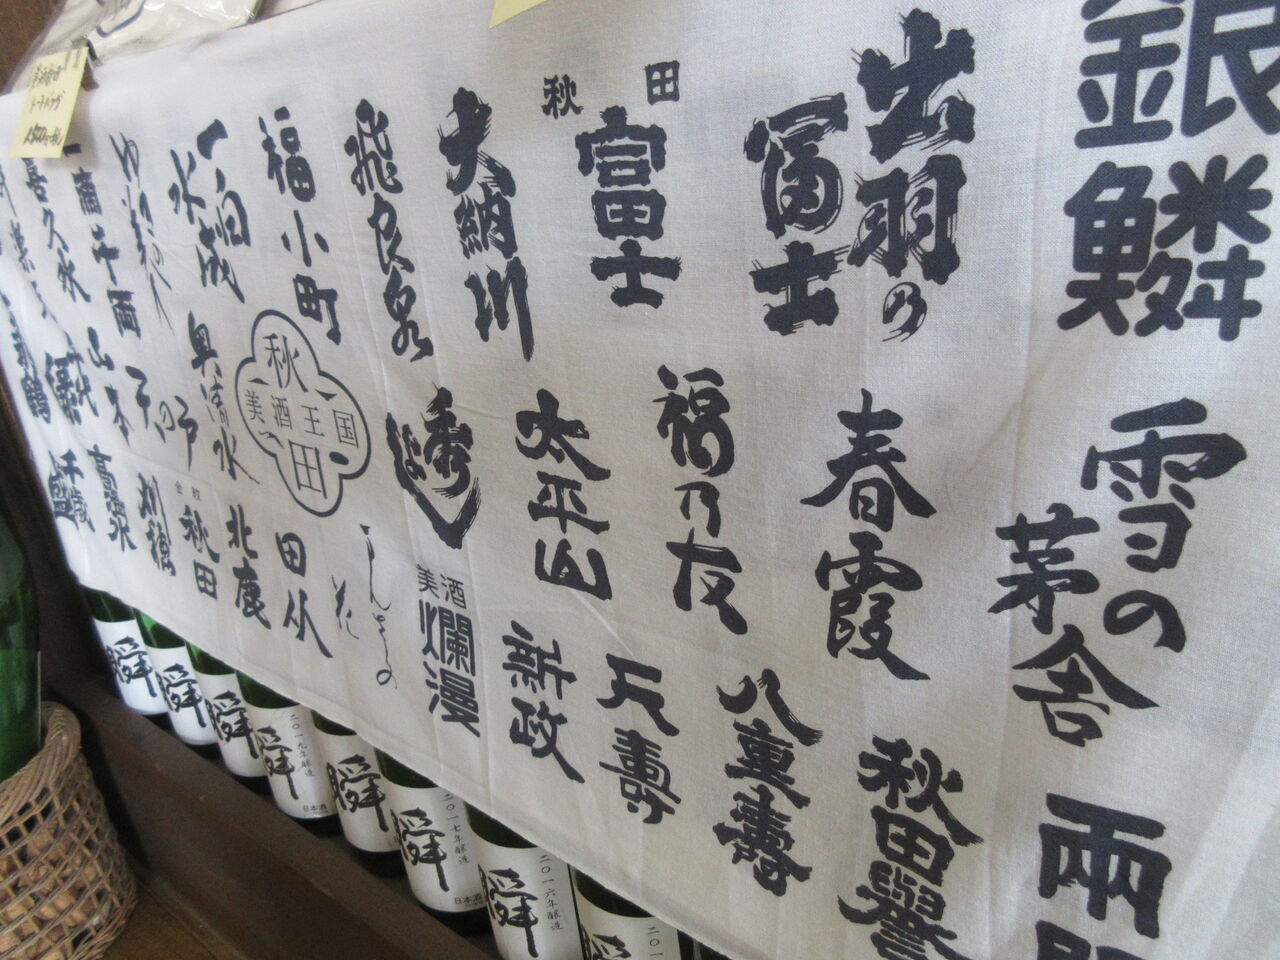 銀鱗
出羽の
冨士
秋田
富士
大納川
飛良泉
福小町
一白
水成
ゆきの美人
一滴千両
喜久水
雪の
茅舎
春霞
福乃友
太平山
秋田
美酒王国
奥清水
天の戸
山本
両
秋田誉
八重寿
万寿
新政
美酒
爛漫
まんさくの
花
田从
北鹿
金紋
秋田
刈穂
高清水
千歳盛
瞬
瞬
瞬
瞬
二〇一九年醸造
日本酒
瞬
瞬
二〇一七年醸造
日本酒
瞬
二〇一六年醸造
瞬
二〇一